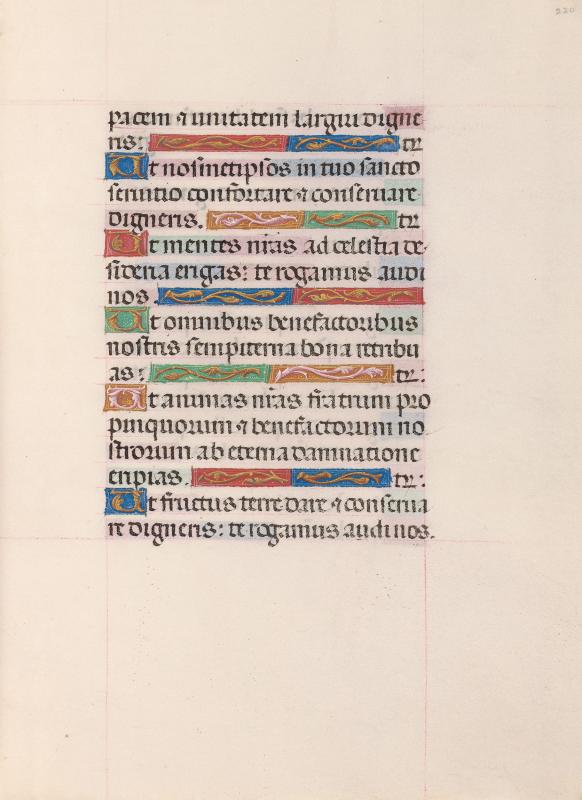 220
pacem ⁊ unitatem largiri digne
ris: tr
Ut nosmetipsos in tuo sancto
seruitio confortare ⁊ conseruare
digneris. tr
Ut mentes nr̃as ad celestia de-
sideria erigas: te rogamus audi
nos.
Ut omnibus benefactoribus
nostris sempiterna bona retribu
as: tr:
Ut animas nr̃as fr̃atrum pro
pinquorum ⁊ benefactorum no
strorum ab eterna damnatione
eripias. tr:
Ut fructus terre dare ⁊ conserua
re digneris: te rogamus audi nos.